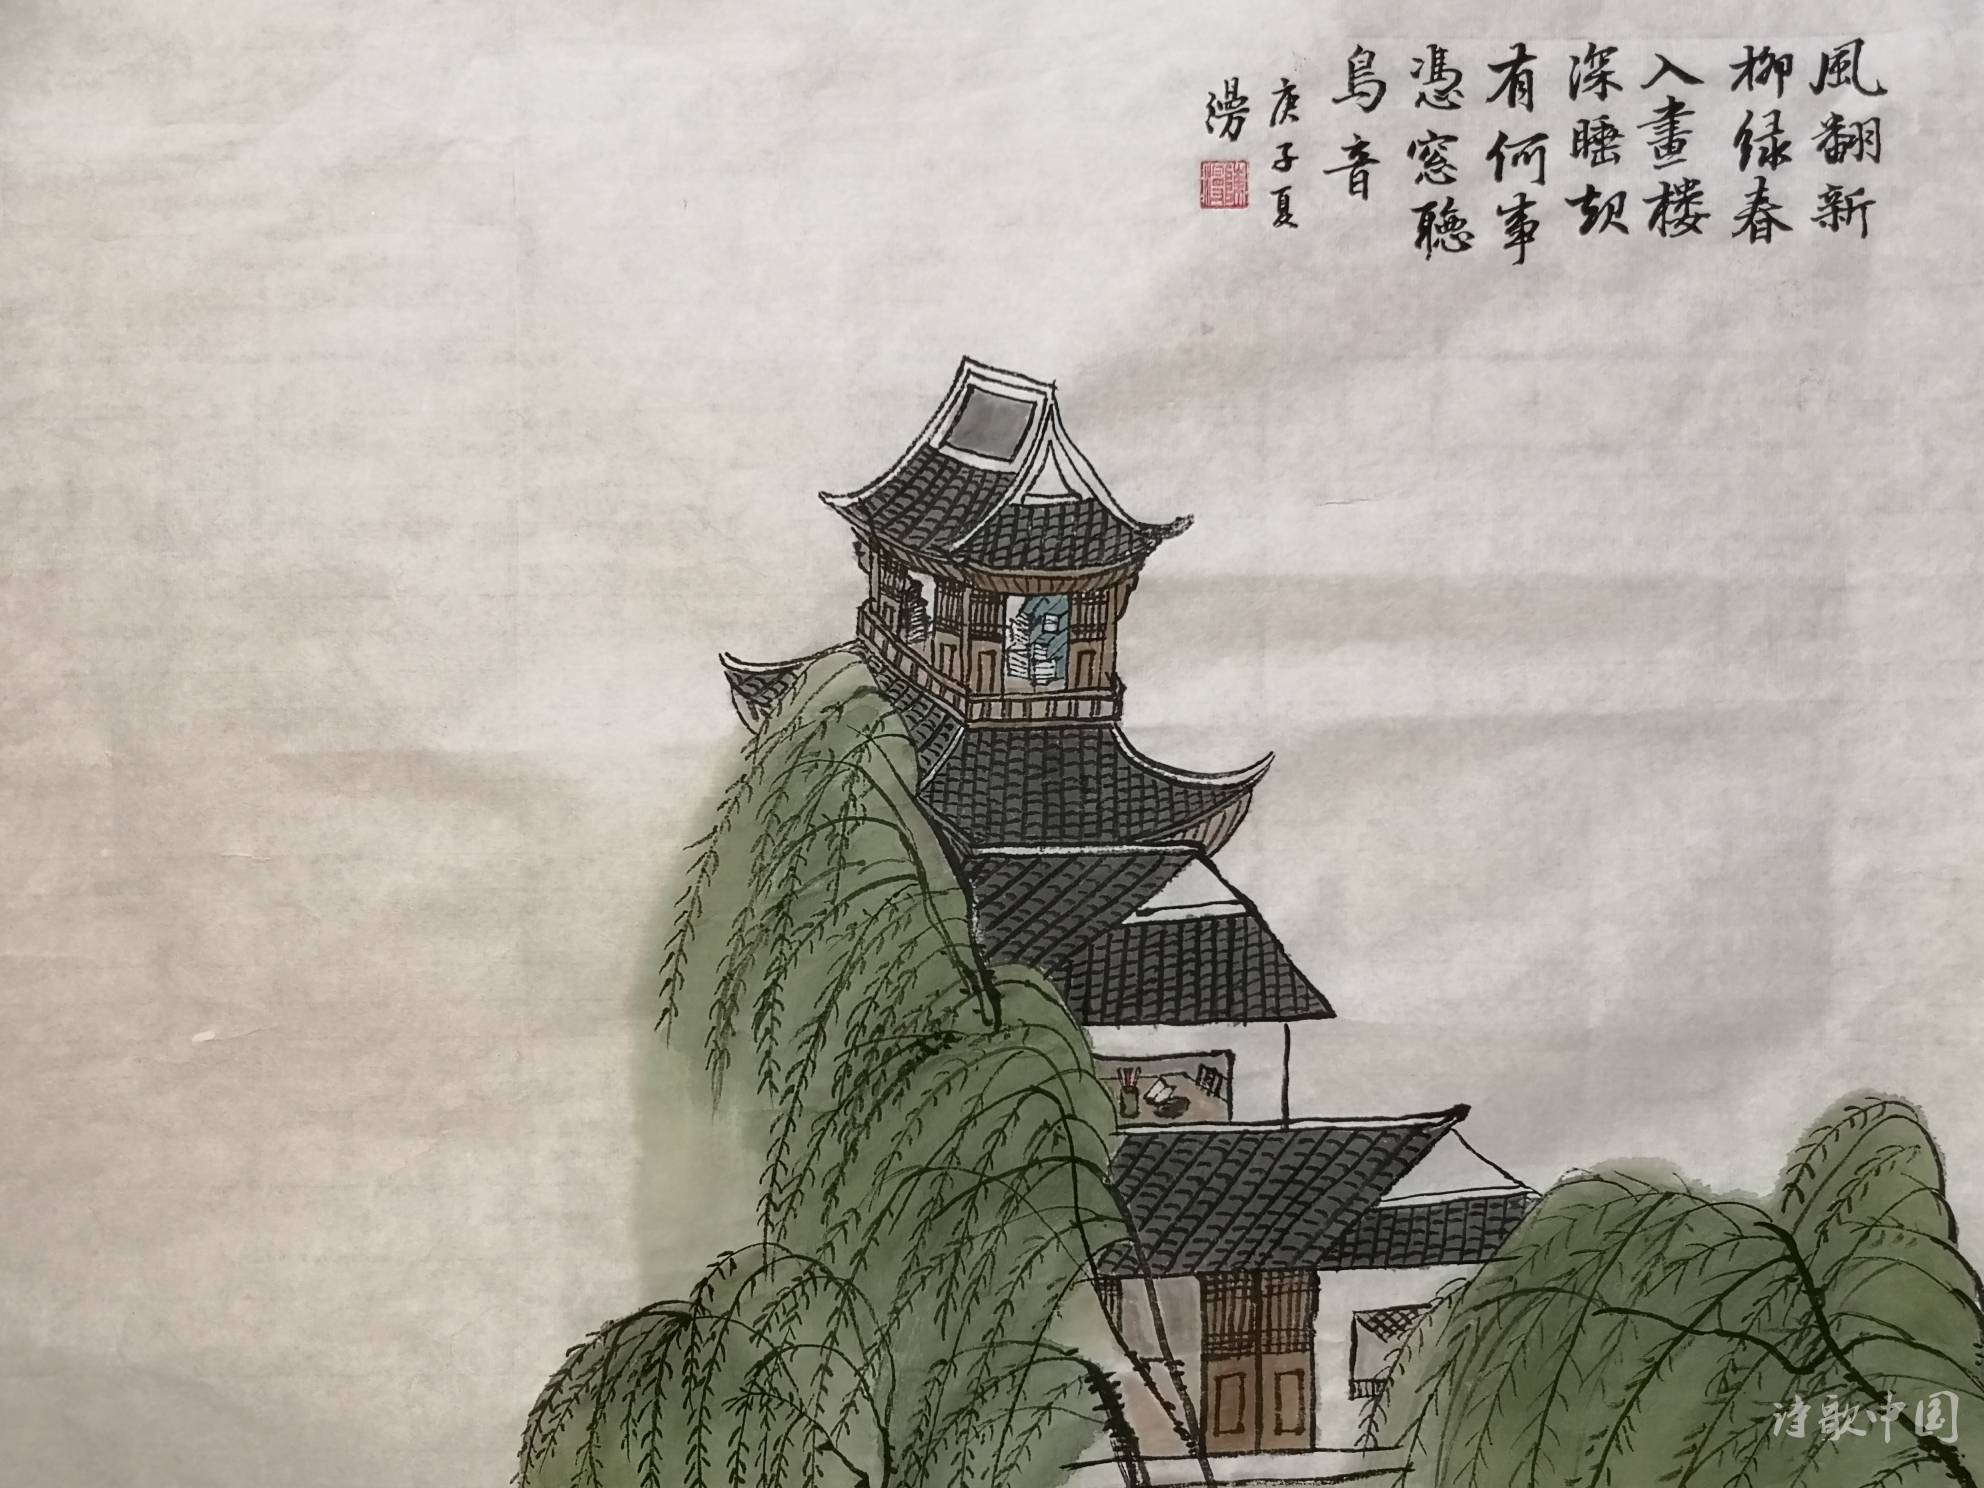 風翻新
柳绿春
入畫楼
深睡起
有何事
憑窓聽
鳥音
庚子夏
诗歌中国